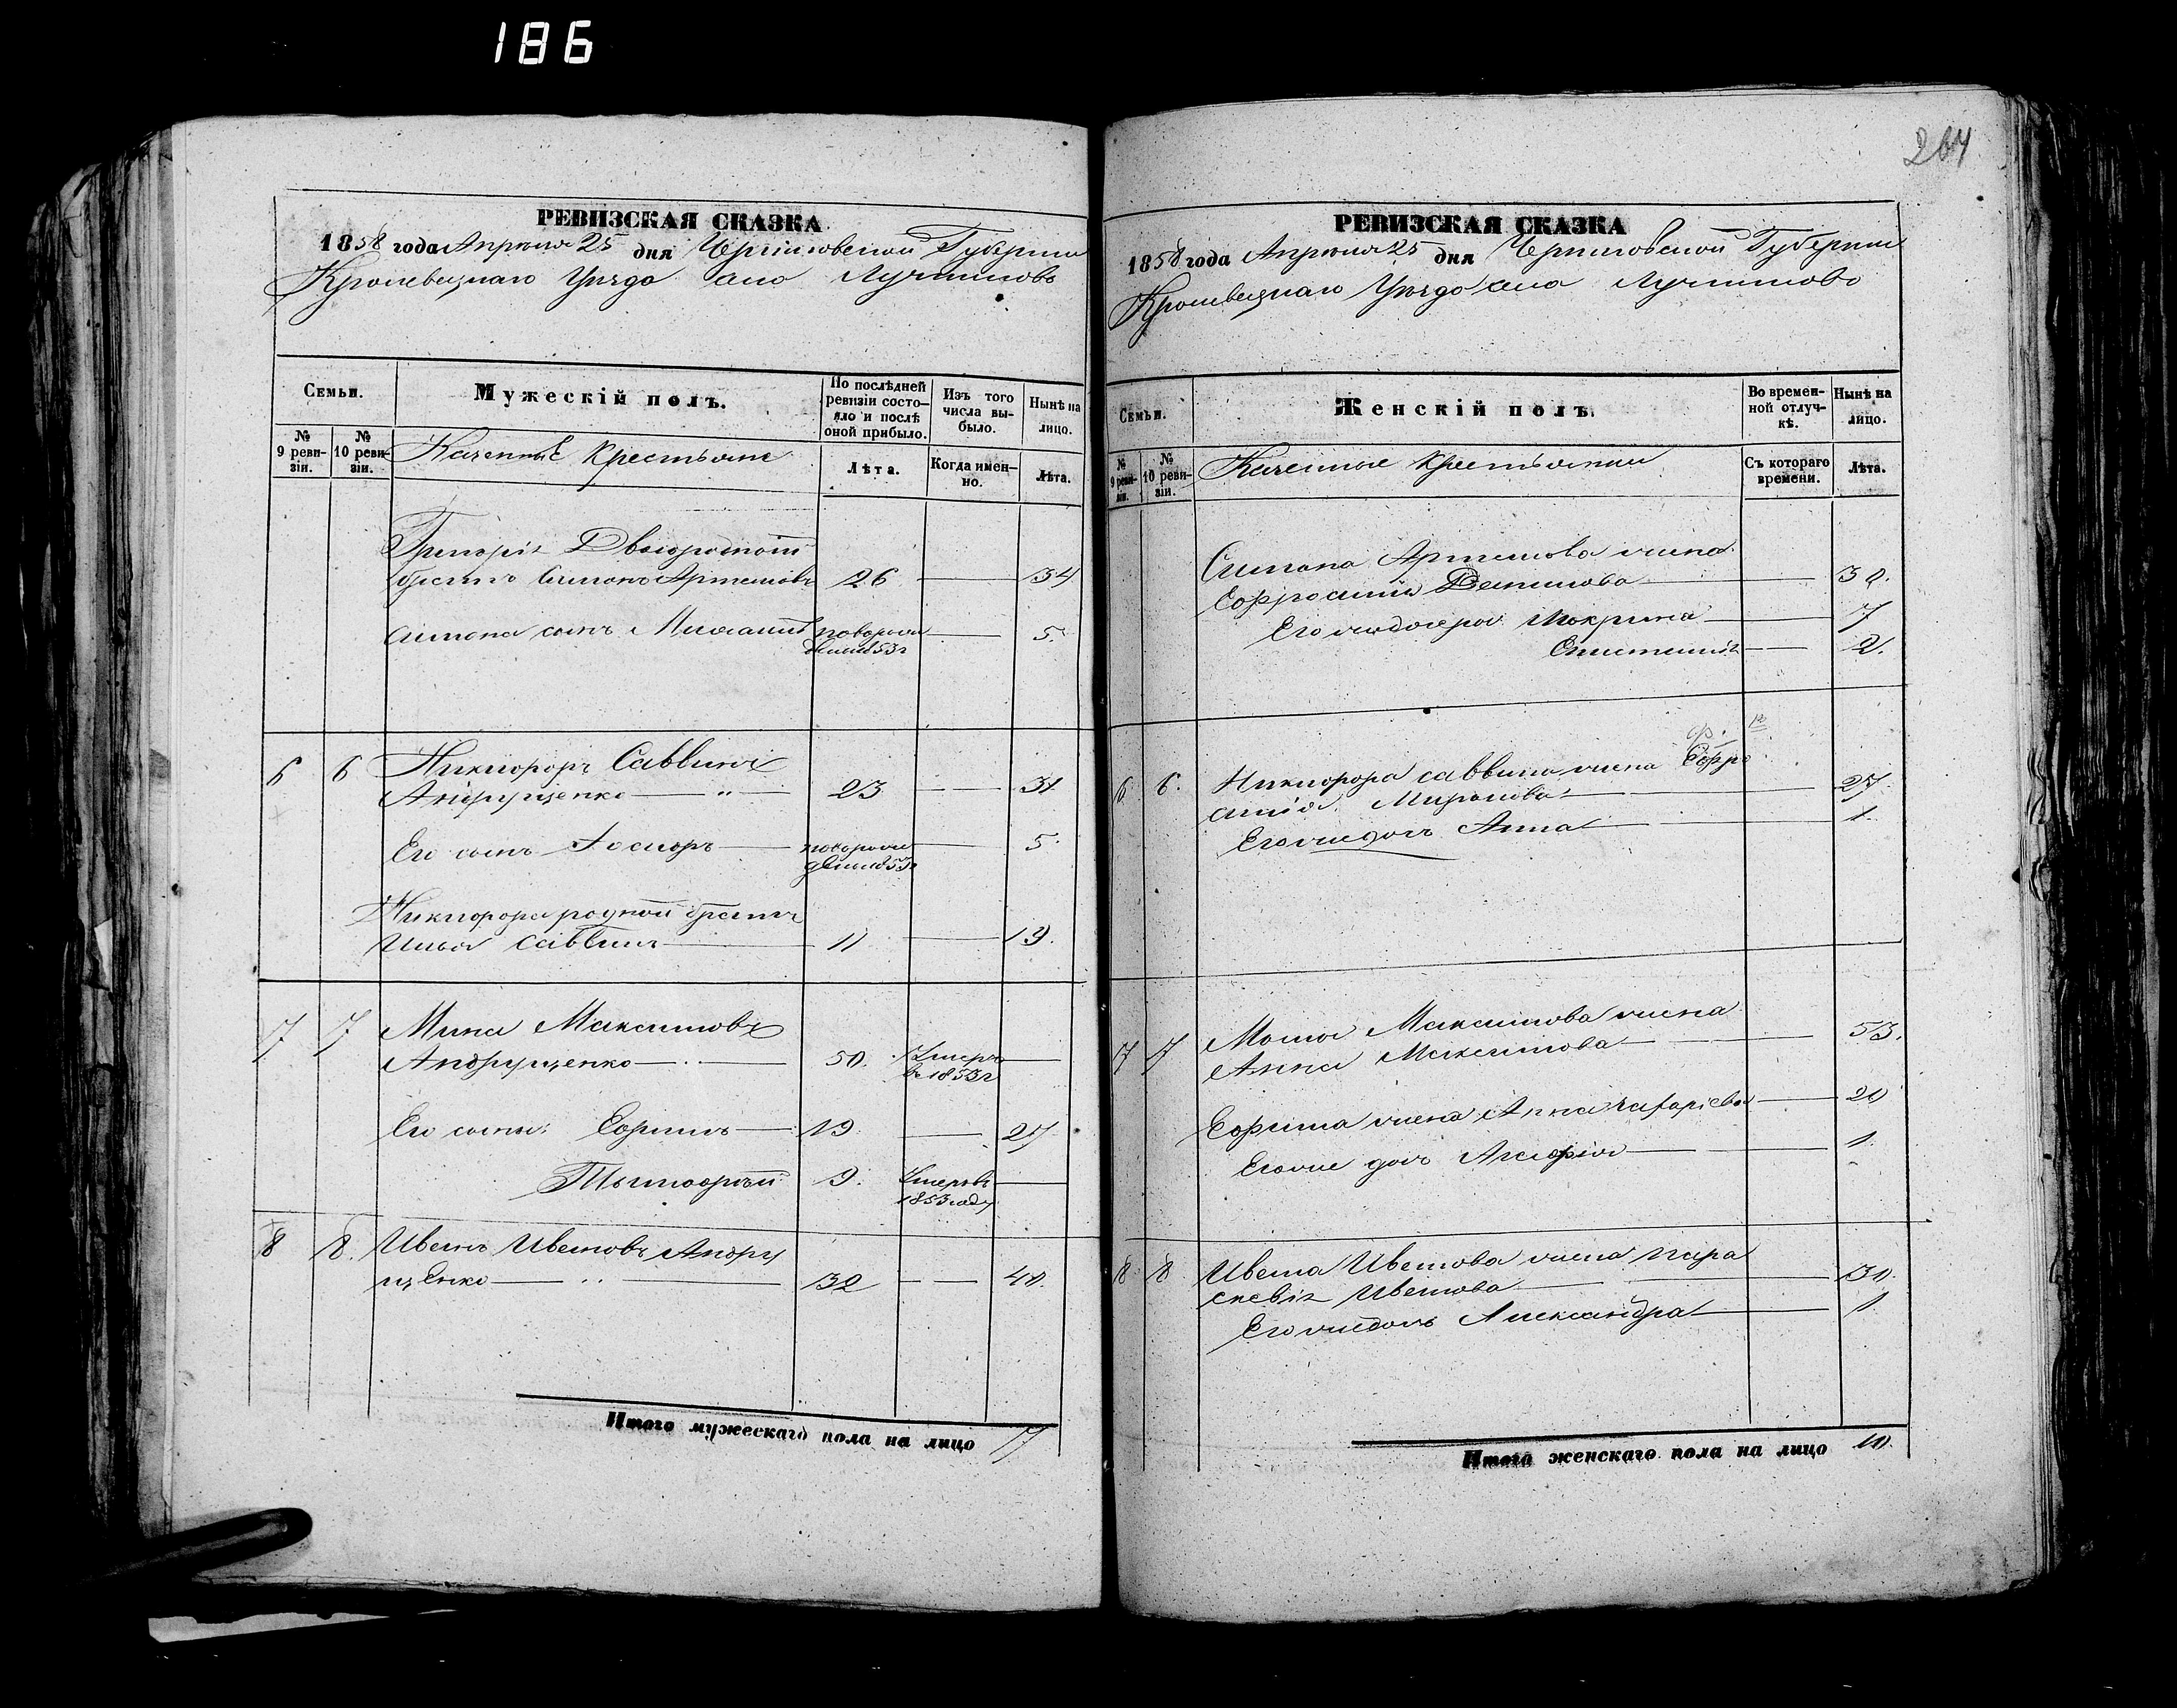 186
264
РЕВИЗСКАЯ СКАЗКА
1858 года Апреля 25 дня Черниговской Губернии
Кролевецкаго Уезда села
Мужескій полъ.
Семьи.
№ 9 ревизіи.
№ 10 ревизіи.
По послѣдней ревизіи состояло и послѣ оной прибыло.
Изъ того числа выбыло.
Нынѣ на лицо.
Лѣта.
Когда именно.
Лѣта.
Казенные Крестьяне
Григорія Двоюродной
братъ Симонъ Артемовъ 26 — 34
Симона сынъ 5
6 6 Никифоръ Саввинъ
Андрущенко — " — 23 — — 31
Его сынъ — — 5.
Никифора родной братъ
Илья Саввинъ — 11 — 19.
7 7 Мина Максимовъ
Андрущенко — 50. Умеръ —
въ 1853г
Его сыны: Ефимъ — 19. — 27
Тимофей 9. Умеръ въ —
1853 году
8 8. Иванъ Ивановъ Андру
щенко — 32 — — 40.
Итого мужескаго пола на лицо 7
РЕВИЗСКАЯ СКАЗКА
1858 года Апреля 25 дня Черниговской Губернии
Кролевецкаго Уезда села
Семьи.
Женскій полъ.
Во временной отлучкѣ.
Нынѣ на лицо.
№ 9 ревизіи.
№ 10 ревизіи.
Казенные Крестьянки
Съ котораго времени.
Лѣта.
Симона Артемова жена
Ефросинія — 30.
Его же дочери Мокрина — 7
— 2.
6 6. Никифора Саввина жена Ефро
синія Миронова — 27
Его же дочь Анна — 1.
7 7 Максимова жена
Анна Максимова — 53.
Ефима жена Анна Захаріева — 20
Его же дочь — 1.
8 8 Ивана Иванова жена Пара
скевія Иванова — 30.
Его же дочь Александра — 1
Итого женскаго пола на лицо 10.